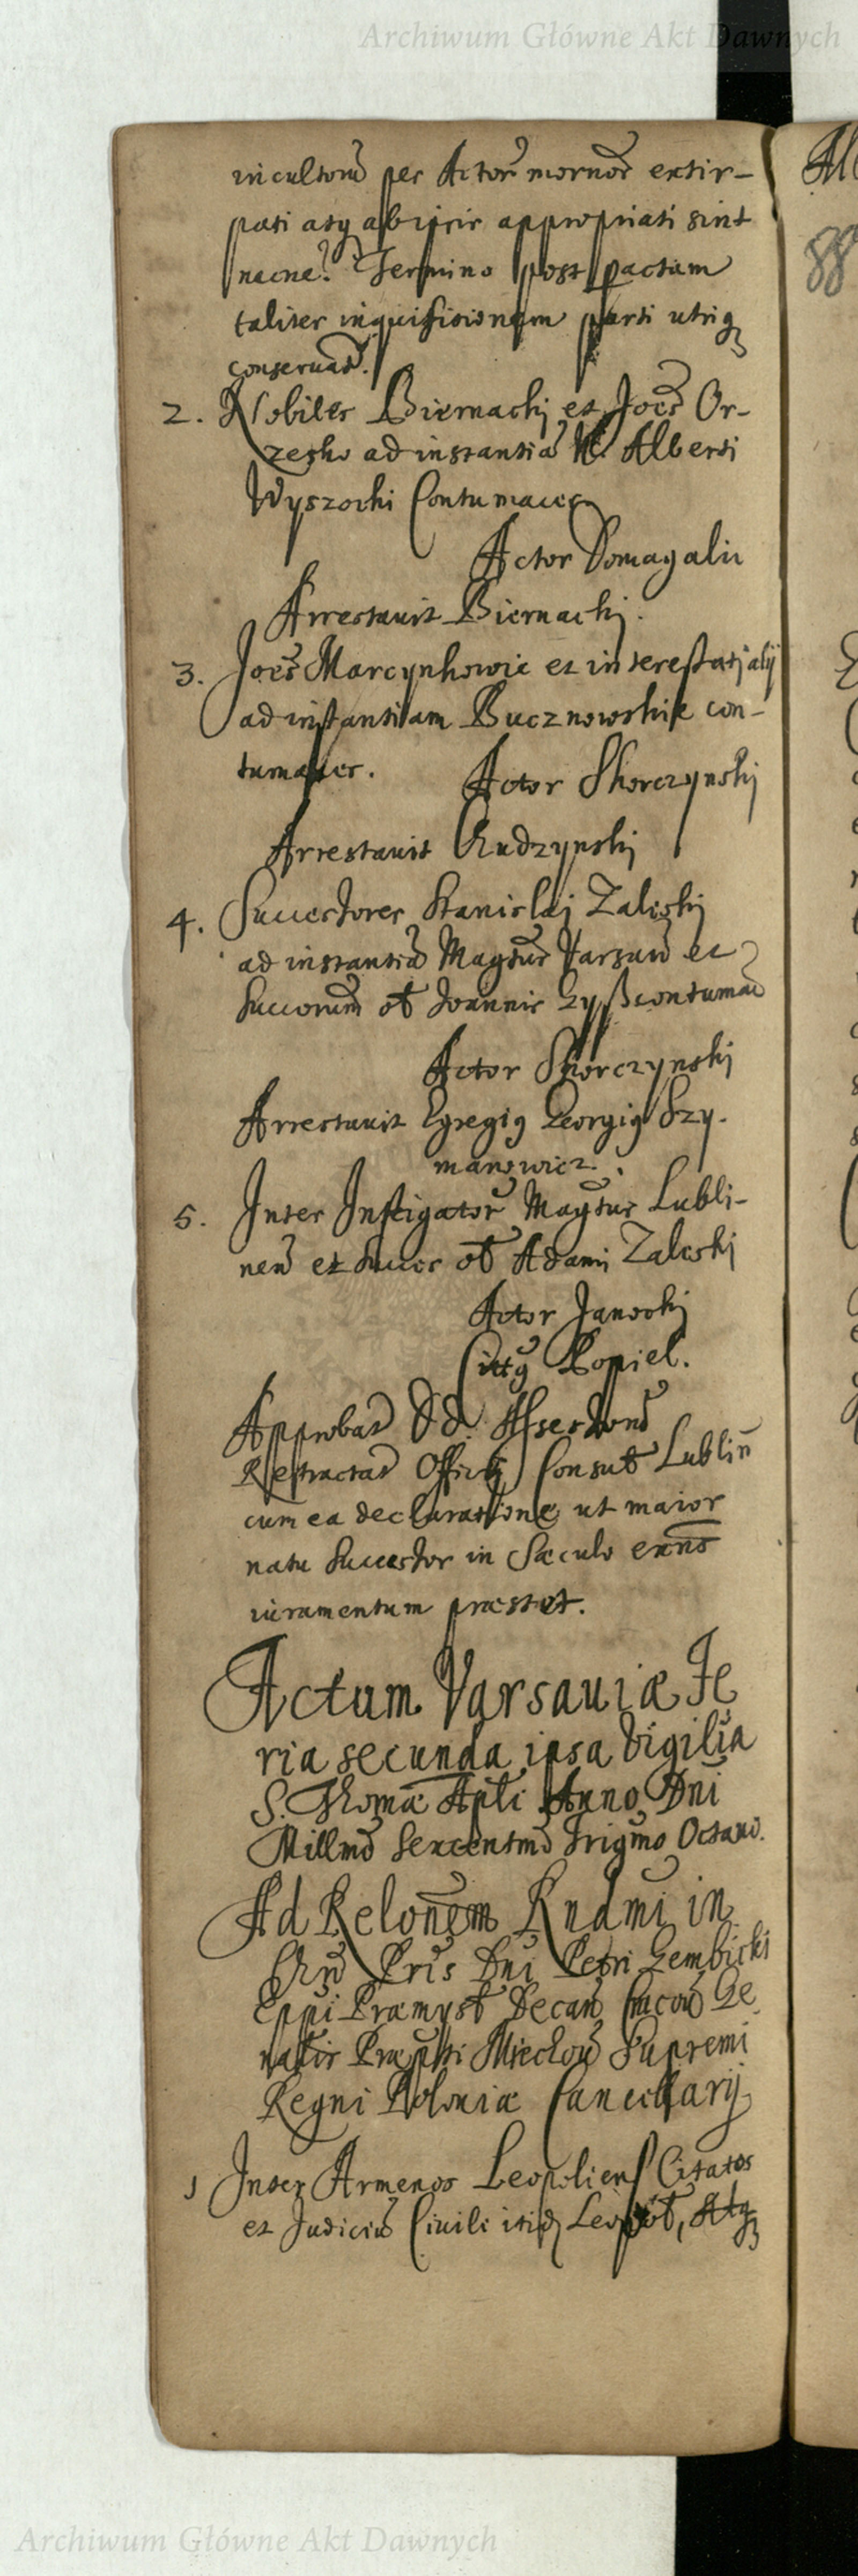 Archiwum Główne Akt Dawnych
incultorũ per Actor mornor extir-
pati atq abijcir appropriati sint
necne? Termino post pactam
taliter inquisitionem parti utriq
conseruat.
2. Nobiles Biernachj et Joes Or-
zesko ad instantiã N. Alberti
Wyszochi Contumaces
Actor Domagalii
Arrestauit Biernachj.
3. Joes Marcynkowic et interessatj alij
ad instantiam Bucznowskie con-
tumaces.
Actor Skorczynskj
Arrestauit Rudzynskj
4. Successores Stanislaj Zaleskj
ad instantiã Magtus Varsau et
Succorum ol Joannis contumac
Actor Skorczynskj
Arrestauit Egregiq Georgiq Szy-
manowicz.
5. Inter Instigator Magtus Lubli-
nen et Succes ol Adami Zaleskj
Actor Janockj
Cittq Popiel.
Approbat Dd. Assertond
Retractat Officij Consul Lublin
cum ea declaratione ut maior
natu Successor in Sæculo exñs
iuramentum præstet.
Actum Varsauiæ Fe
ria secunda ipsa Vigilia
S. Thomæ Apli Anno Dni
Millmo Sexcentmo Trigmo Octauo.
Ad Relonem Rndmi in
Chro Pris Dni Petri Gembicki
Eppi Præmysl Decan Cracou Ge
nalis Præptti Miechou Supremi
Regni Poloniæ Cancellarij
1 Inter Armenos Leopoliens Citatos
et Judiciũ Ciuili itid Leopol, Atq
All
88
Archiwum Główne Akt Dawnych